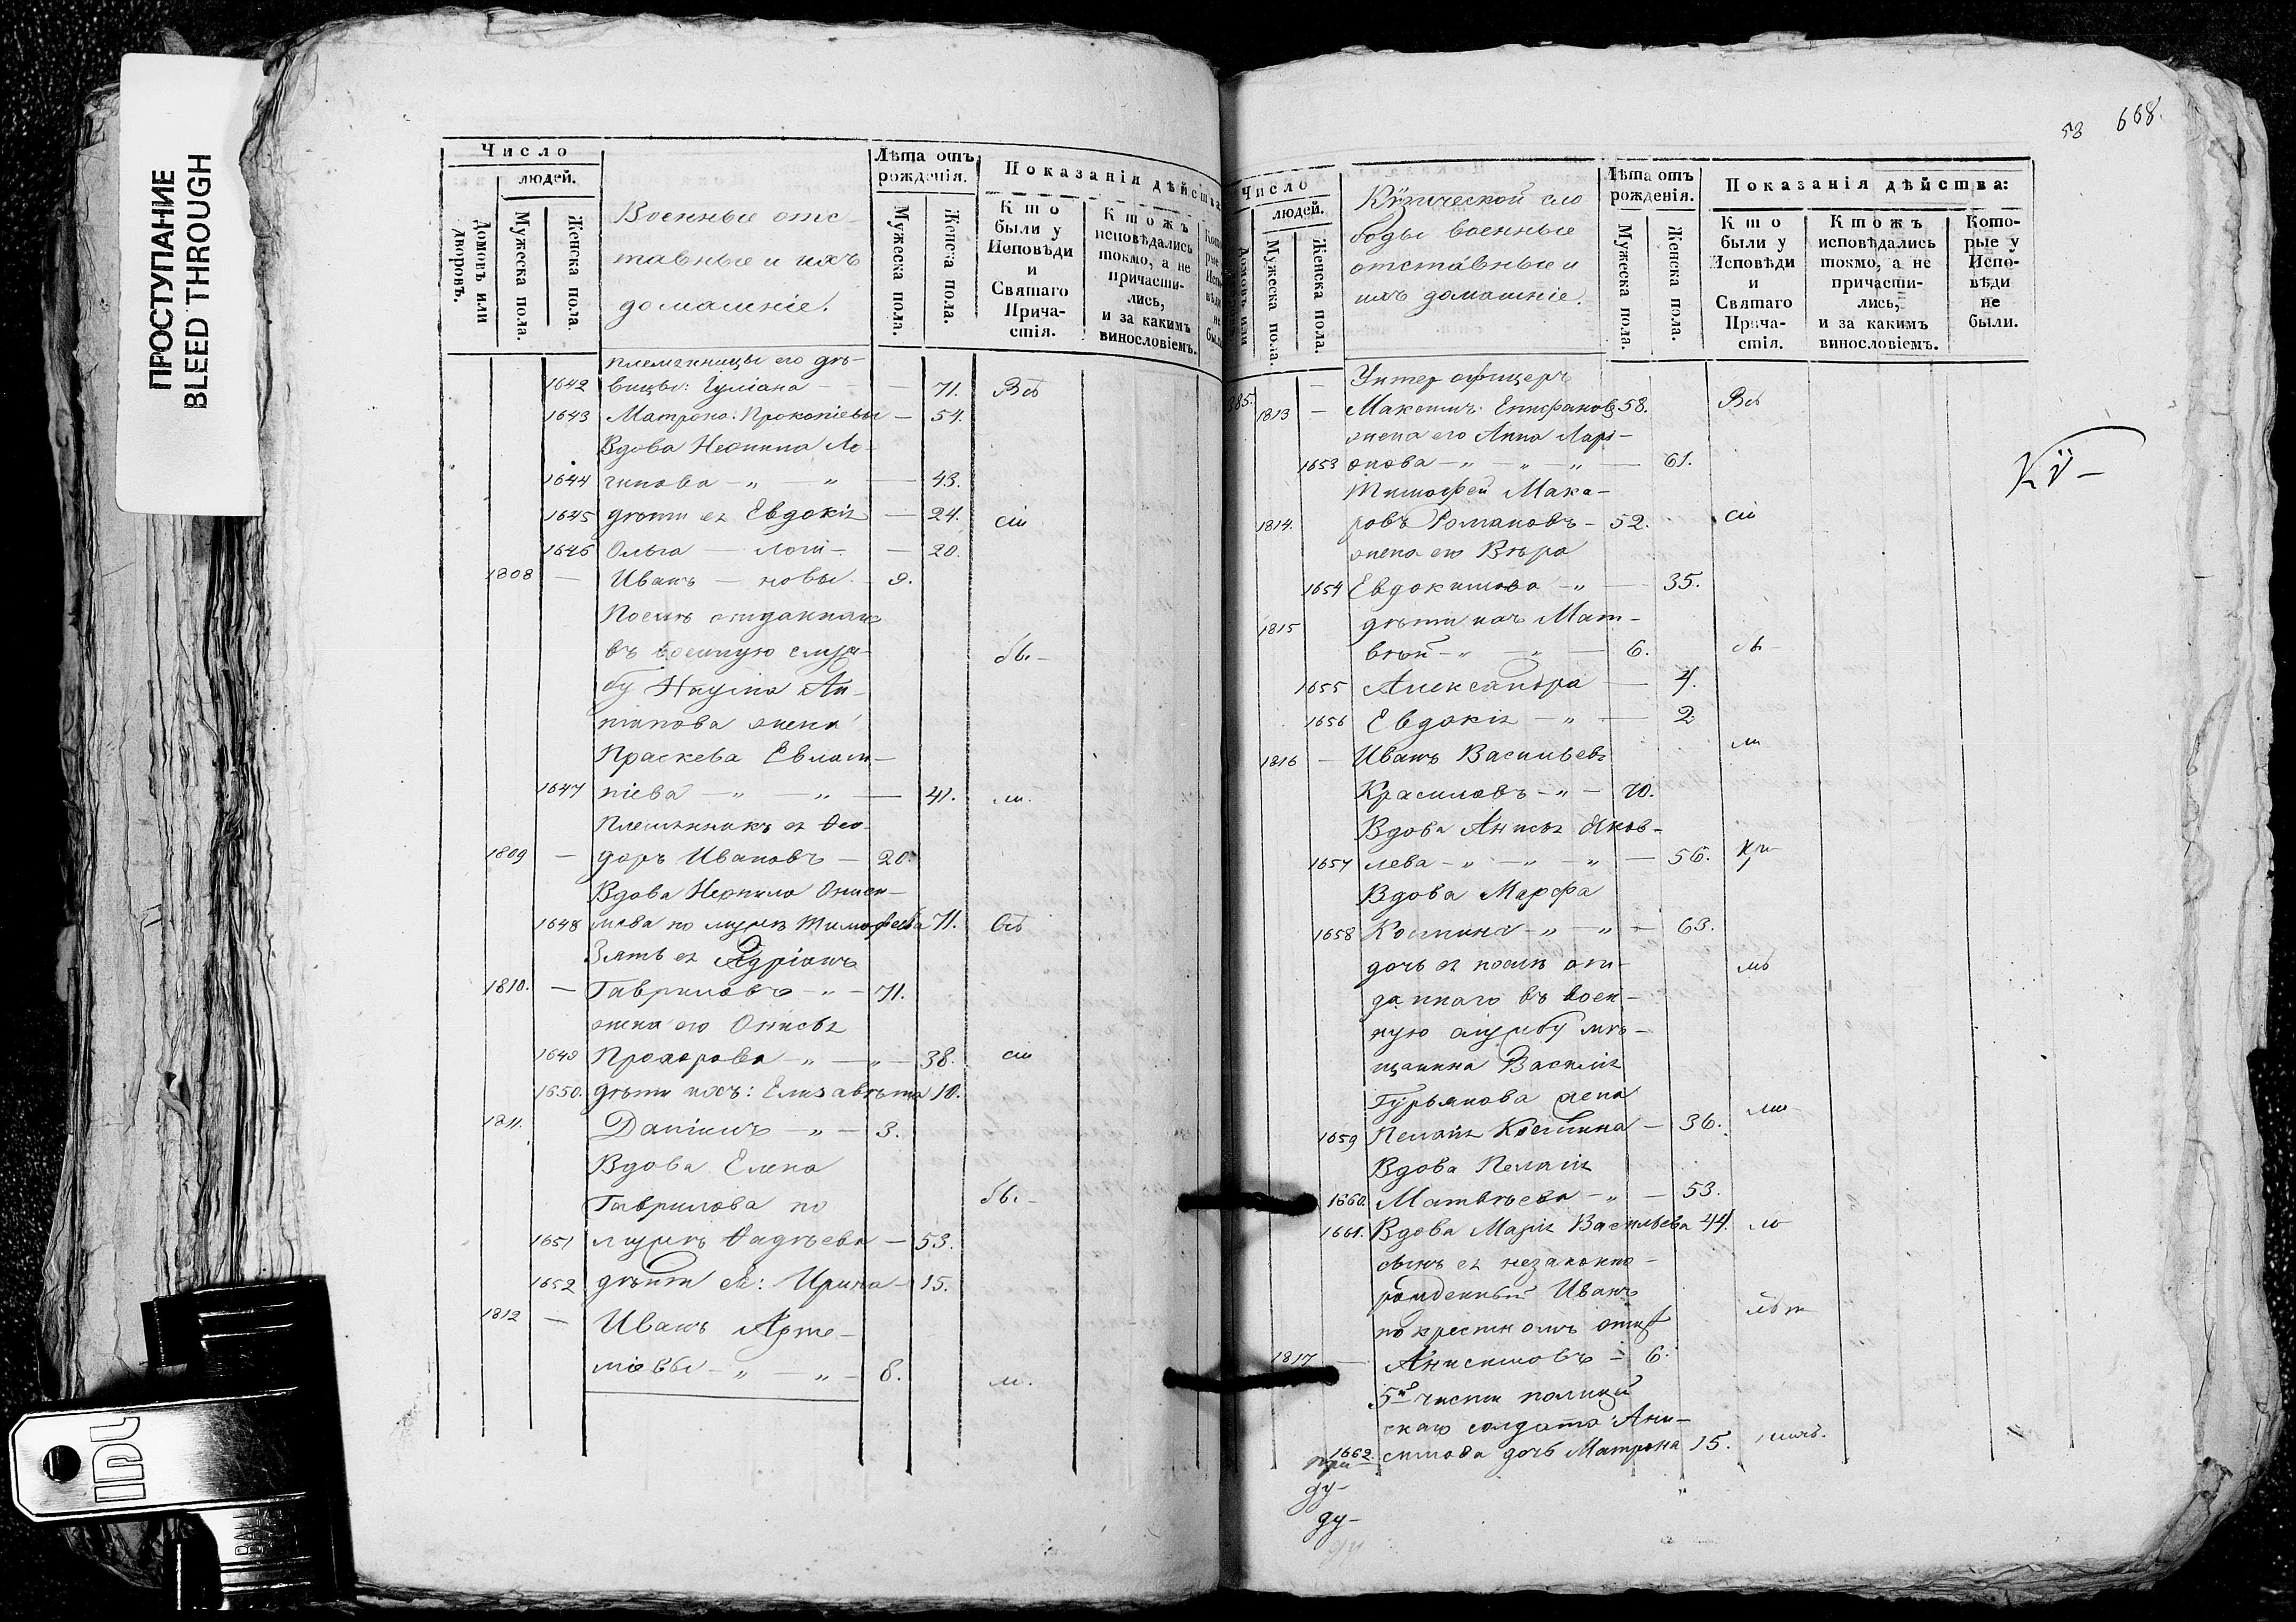 ПРОСТУПАНИЕ
BLEED THROUGH
Число
людей.
Домовъ или дворовъ.
Мужеска пола.
Женска пола.
Военные отс-
тавные и ихъ
домашніе.
Лѣта отъ рожденія.
Мужеска пола.
Женска пола.
Показанія дѣйства
Кто были у Исповѣди и Святаго Причастія.
Ктожъ исповѣдались токмо, а не причастились, и за какимъ винословіемъ.
племянницы его дѣ-
1642 вицы: Іуліана — — 71. Всѣ
1643 Матрона: Прокопіевы — 54.
Вдова Неонила Ло-
1644 гинова — „ — „ — 43.
1645 дѣти ея Евдокія — 24. сіи
1646 Ольга — Логи- — 20.
1808 — Иванъ — новы. — 9.
Послѣ отданнаго
въ военную служ- бы-
бу Наума Ан-
типова жена
Праскева Евлам-
1647 піева — „ — „ — 41. ли.
Племянникъ ея Ѳео-
1809 — доръ Ивановъ — 20.
Вдова НеонилаОниси-
1648 мова по мужѣ Тимофеева 71. Всѣ
Зять ея Адріанъ
1810. — Гавриловъ — „ — 71.
жена его Онисья
1649 Прохорова — „ — „ — 38. сіи
1650. дѣти ихъ: Елизавѣта 10.
1811. Даніилъ — „ — 3.
Вдова Елена
Гаврилова по бы-
1651 мужѣ Ѳадѣева — 53.
1652 дѣти ея: Ирина — 15.
1812 — Иванъ Арте-
міевы — „ — „ — 8. ли.
58 668.
Число
людей.
Домовъ или
Мужеска пола.
Женска пола.
Кузнеческой сло
боды военные
отставные и
ихъ домашніе.
Лѣта отъ рожденія.
Мужеска пола.
Женска пола.
Показанія дѣйства:
Кто были у Исповѣди и Святаго Причастія.
Ктожъ исповѣдались токмо, а не причастились, и за какимъ винословіемъ.
Которые у Исповѣди не были.
— Унтер офицеръ
385. 1813 — Максимъ Епифановъ 58. Всѣ
жена его Анна Лари-
1653 онова — „ — „ — „ — 61.
Тимофей Мака-
1814. ровъ Романовъ — 52. сіи
жена его Вѣра
1654 Евдокимова — „ — 35.
1815 дѣти ихъ Мат-
вѣй — „ — „ — 6. бы-
1655 Александра — 4.
1656 Евдокія — „ — 2
1816 — Иванъ Васильевъ ли
Красиловъ — „ — 70.
Вдова Анисья Яков-
1657 лева — „ — „ — „ — 56.
Вдова Марфа
1658 Космина — „ — „ — 63.
дочь ея послѣ отт-
даннаго въ воен-
ную службу мѣ-
щанина Василія
Гурьянова жена
1659 Пелагія Космина — 36.
Вдова Пелагія
1660. Матвѣева — „ — 53.
1661. Вдова Марія Васильева 44.
сынъ ея незаконно-
рожденный Иванъ
по крестномъ отцѣ
1817 — Анисимовъ — 6.
5й части полицей
скаго солдата Ани-
1662. симова дочь Матрона 15.
ду-
ду-